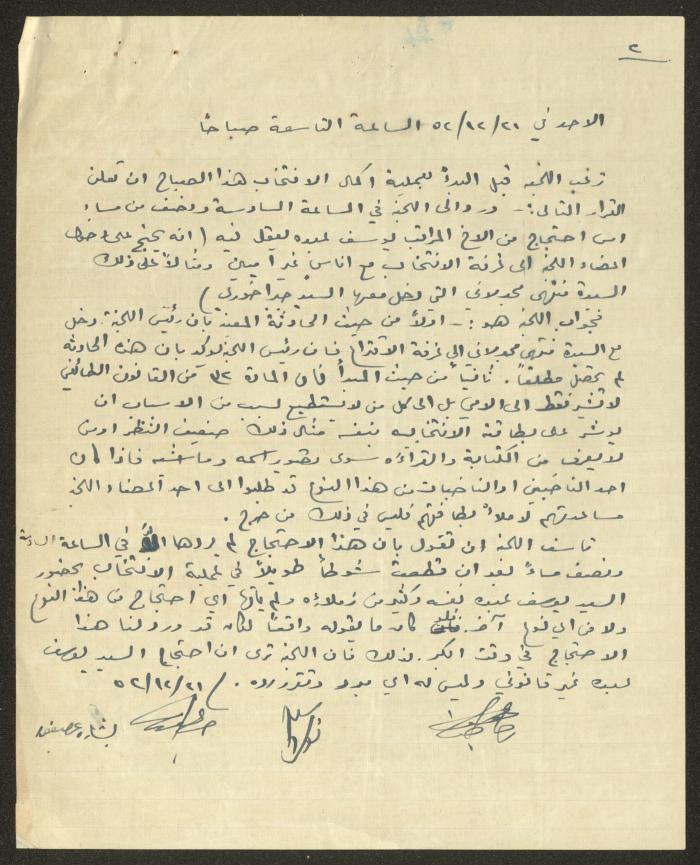 ٢
الاحد في ٥٢/١٢/٢١ الساعة التاسعة صباحاً
ترغب اللجنة قبل البدء بعملية اكمال الانتخاب هذا الصباح ان تعلن
القرار التالي :- ورد الى اللجنة في الساعة السادسة ونصف من مساء
امس احتجاج من الاخ المراقب يوسف عبده يقول فيه ( انه يحتج على دخول
اعضاء اللجنة الى غرفة الانتخاب مع اناس غير اميين ومثالاً على ذلك
السيدة منتهى مجدلاني التي دخل معها السيد جبرا خوري )
فجواب اللجنة هو :- اولاً من حيث الحادثة المعينة بان رئيس اللجنة دخل
مع السيدة منتهى مجدلاني الى غرفة الاقتراع فان رئيس اللجنة يؤكد بان هذه الحادثة
لم تحصل مطلقاً . ثانياً من حيث المبدأ فان المادة ٣٢ من القانون الطائفي
لا تشير فقط الى الامي بل الى كل من لا يستطيع لسبب من الاسباب ان
يؤشر على بطاقة الانتخاب بنفسه مثال ذلك ضعيف النظر او من
لا يعرف من الكتابة والقراءة سوى تصوير اسمه وما اشبه فاذا كان
احد الناخبين او الناخبات من هذا النوع قد طلبوا الى احد اعضاء اللجنة
مساعدتهم لاملاء بطاقتهم فليس في ذلك من حرج .
تأسف اللجنة ان تقول بان هذا الاحتجاج لم يردها الا في الساعة السادسة
ونصف مساءً بعد ان قطعت شوطاً طويلاً في عملية الانتخاب بحضور
السيد يوسف عبده نفسه وكثير من زملاءه ولم يأتها اي احتجاج من هذا النوع
ولا من اي نوع آخر . فلو كان ما يقوله واقعياً لكان قد ورد لنا هذا
الاحتجاج في وقت ابكر . لذلك فان اللجنة ترى ان احتجاج السيد يوسف
عبده غير قانوني وليس له اي مبرر وتقرر رده . / ٥٢/١٢/٢١